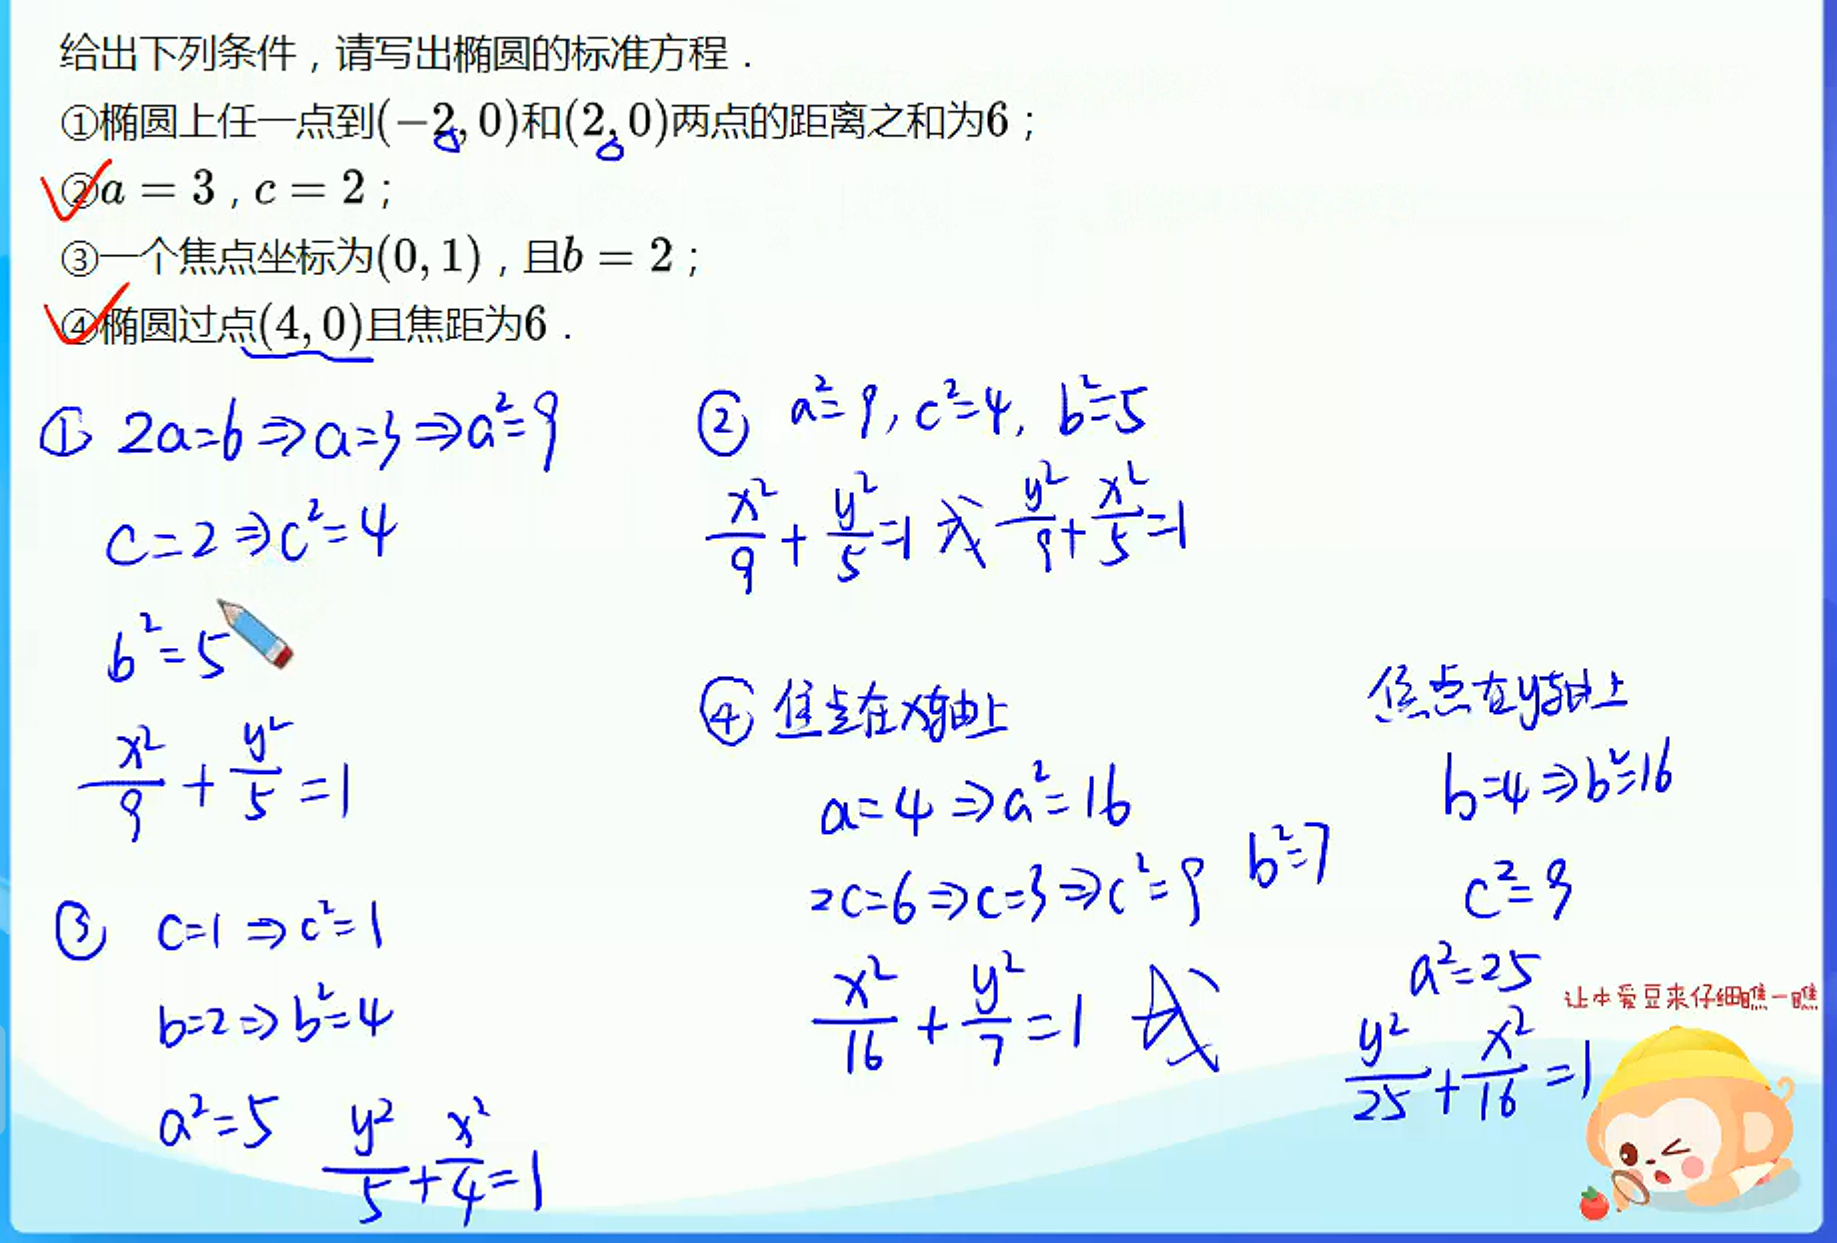 给出下列条件，请写出椭圆的标准方程．
①椭圆上任一点到(−2, 0)和(2, 0)两点的距离之和为6；
②a = 3，c = 2；
③一个焦点坐标为(0, 1)，且b = 2；
④椭圆过点(4, 0)且焦距为6．
① 2a=6⇒a=3⇒a²=9
c=2⇒c²=4
b²=5
x²/9 + y²/5 = 1
② a²=9, c²=4, b²=5
x²/9 + y²/5 = 1 或 y²/9 + x²/5 = 1
③ c=1⇒c²=1
b=2⇒b²=4
a²=5
y²/5 + x²/4 = 1
④ 焦点在x轴上
a=4⇒a²=16
2c=6⇒c=3⇒c²=9 b²=7
x²/16 + y²/7 = 1 或
焦点在y轴上
b=4⇒b²=16
c²=9
a²=25
y²/25 + x²/16 = 1
让本爱豆来仔细瞧一瞧